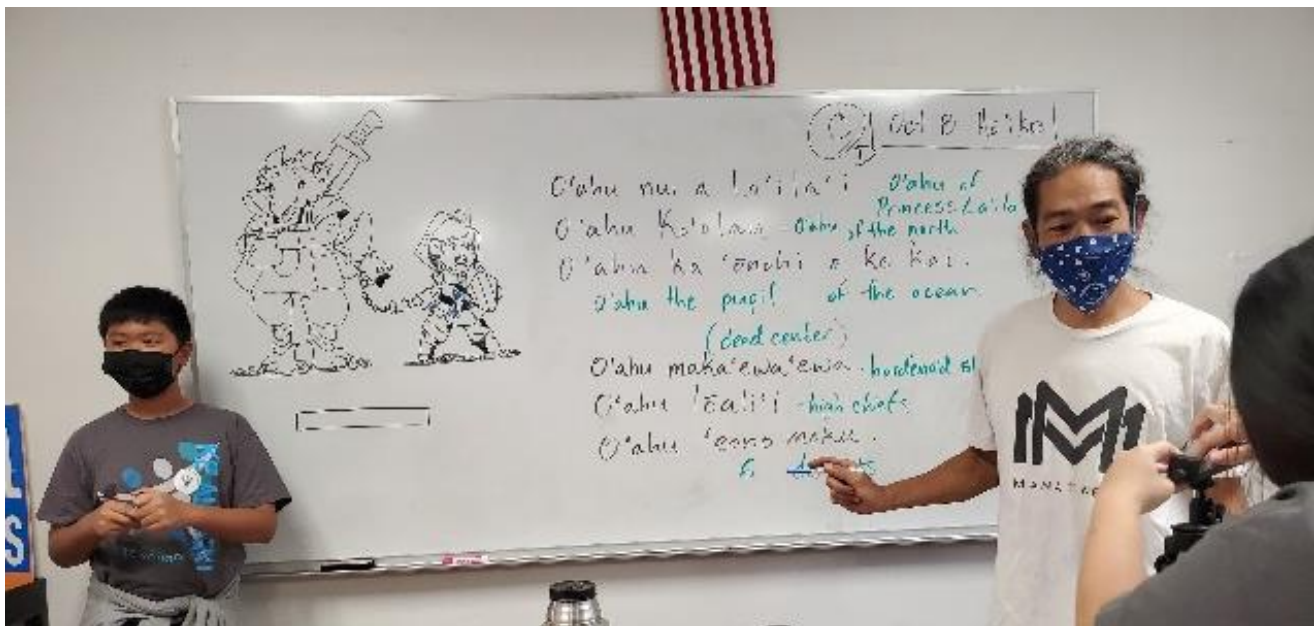 Oct 8
O'ahu nui a La'ila'i O'ahu of
Princess
O'ahu Ko'olau - O'ahu of the north
O'ahu ka 'ōnohi o ke kai.
O'ahu the pupil of the ocean
(dead center)
O'ahu maka'ewa'ewa - hardened
O'ahu - high chiefs
O'ahu 'eono moku.
6
M
S